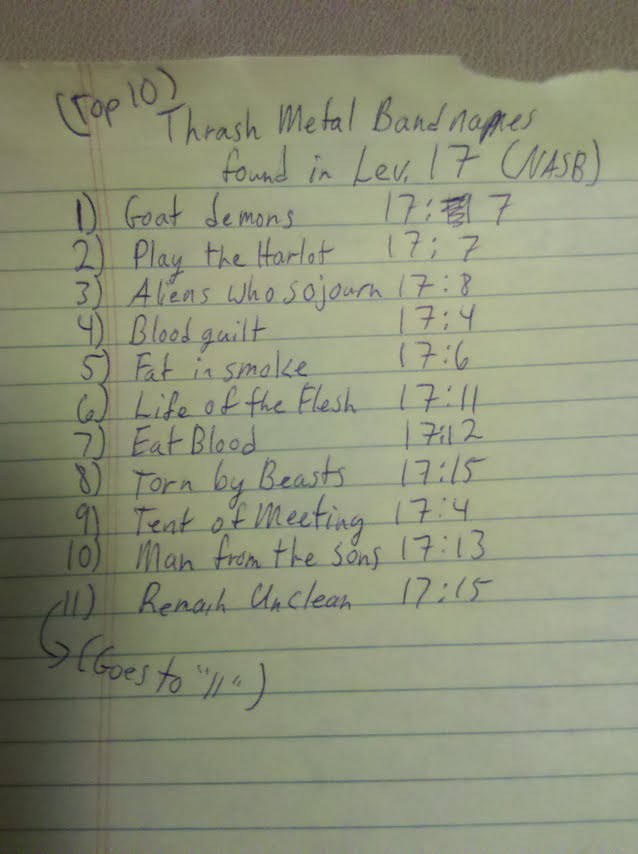 (Top 10)
Thrash Metal Band names
found in Lev. 17 (NASB)
1) Goat demons 17: 7
2) Play the Harlot 17: 7
3) Aliens who sojourn 17:8
4) Blood guilt 17:4
5) Fat in smoke 17:6
6) Life of the Flesh 17:11
7) Eat Blood 17:12
8) Torn by Beasts 17:15
9) Tent of Meeting 17:4
10) Man from the sons 17:13
11) Remain Unclean 17:15
(Goes to "11")